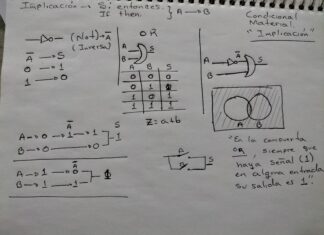 Implicación → Si entonces } A → B
If then.
Condicional
Material.
"Implicación"
(Not) → A̅
(Inversa)
A̅ → S
0 → 1
1 → 0
OR
A
B
S
A B S
0 0 0
0 1 1
1 0 1
1 1 1
Z = a+b
A
A̅
B
S
A B
A̅
S
A → 0 → 1
B → 0 → 0
1
A̅
S
A → 1 → 0
B → 1 → 1
1
A
B
S
"En la compuerta
OR, siempre que
haya señal (1)
en alguna entrada
su salida es 1".